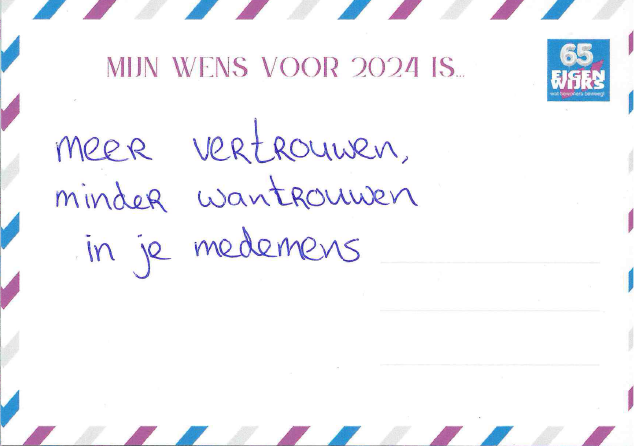 MIJN WENS VOOR 2024 IS...
65
EIGEN
WIJKS
wat bewoners beweegt
meer vertrouwen,
minder wantrouwen
in je medemens